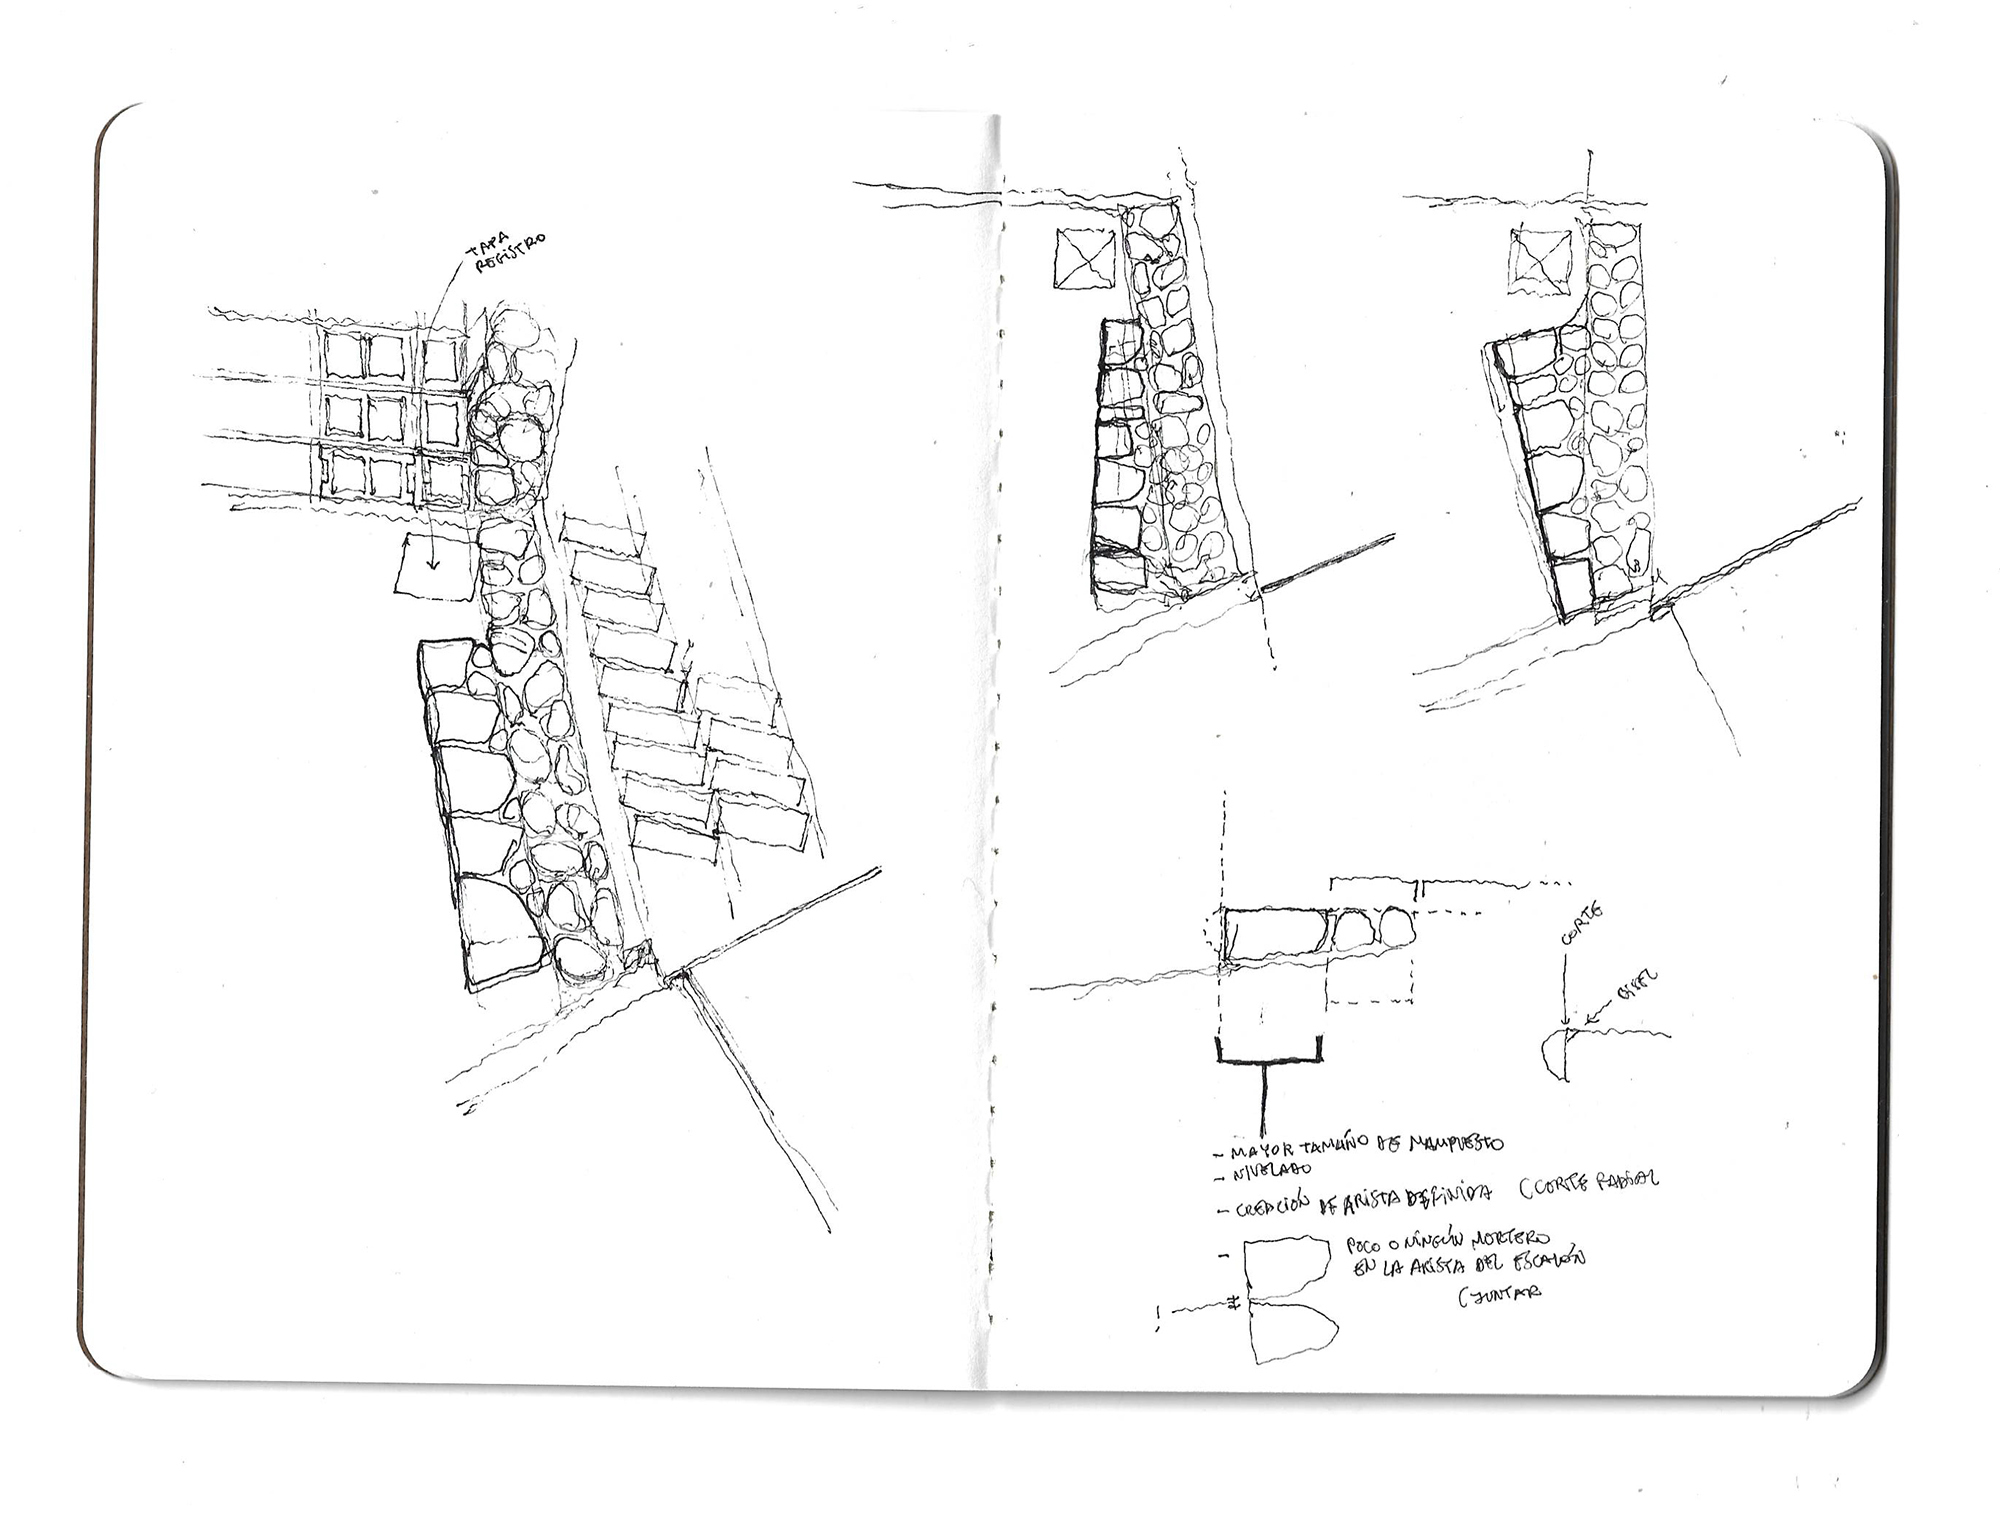 TAPA
REGISTRO
CORTE
BISEL
- MAYOR TAMAÑO DE MAMPUESTO
- NIVELADO
- CREACIÓN DE ARISTA DEFINIDA (CORTE RADIAL
- POCO O NINGÚN MORTERO
EN LA ARISTA DEL ESCALÓN
(JUNTAR
!